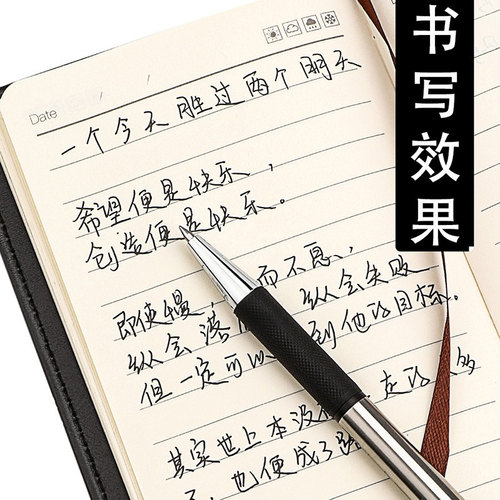 书写效果
Date / /
一个今天胜过两个明天
希望便是快乐，
创造便是快乐。
即使慢，而不息、
纵会落 纵会失败
但一定可以 到他的目标。
其实世上本没 走的 多
了，也便成了路